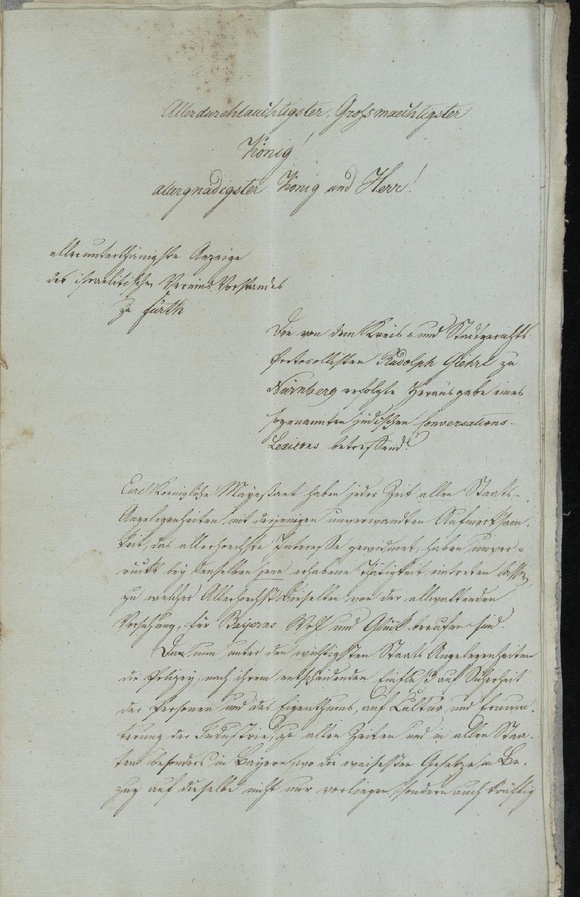 Allerdurchlauchtigster, Grosmaechtigster
König!
allergnädigster König und Herr!
allerunterthänigste Anzeige
des israelitischen Vereins Vorstandes
zu Fürth
Die von dem Kreis- und Stadtgerichts
Protocollisten Rudolph Giehrl zu
Nürnberg erfolgte Herausgabe eines
sogenannten jüdischen Conversations-
Lexicons betreffend.
Eure Koenigliche Majestaet haben jeder Zeit allen Staats-
Angelegenheiten mit derjenigen unverwandten Aufmerksam-
keit, das allerhoechste Interesse gewidmet, haben unver-
rückt bey denselben jene erhabene Thätigkeit eintreten lassen
zu welcher Allerhoechst Dieselben von der allwaltenden
Vorsehung, für Bayerns Wohl und Glück berufen sind.
Da nun unter den wichtigsten Staats Angelegenheiten
die Polizey, nach ihrem entscheidenden Einfluß auf Sicherheit
der Personen und des Eigenthums, auf Cultur und
der Industrie, zu allen Zeiten und in allen Staa-
ten besonders in Bayern, wo die weisesten Gesetze in Be-
zug auf dieselbe nicht nur vorliegen, sondern auch kräftig